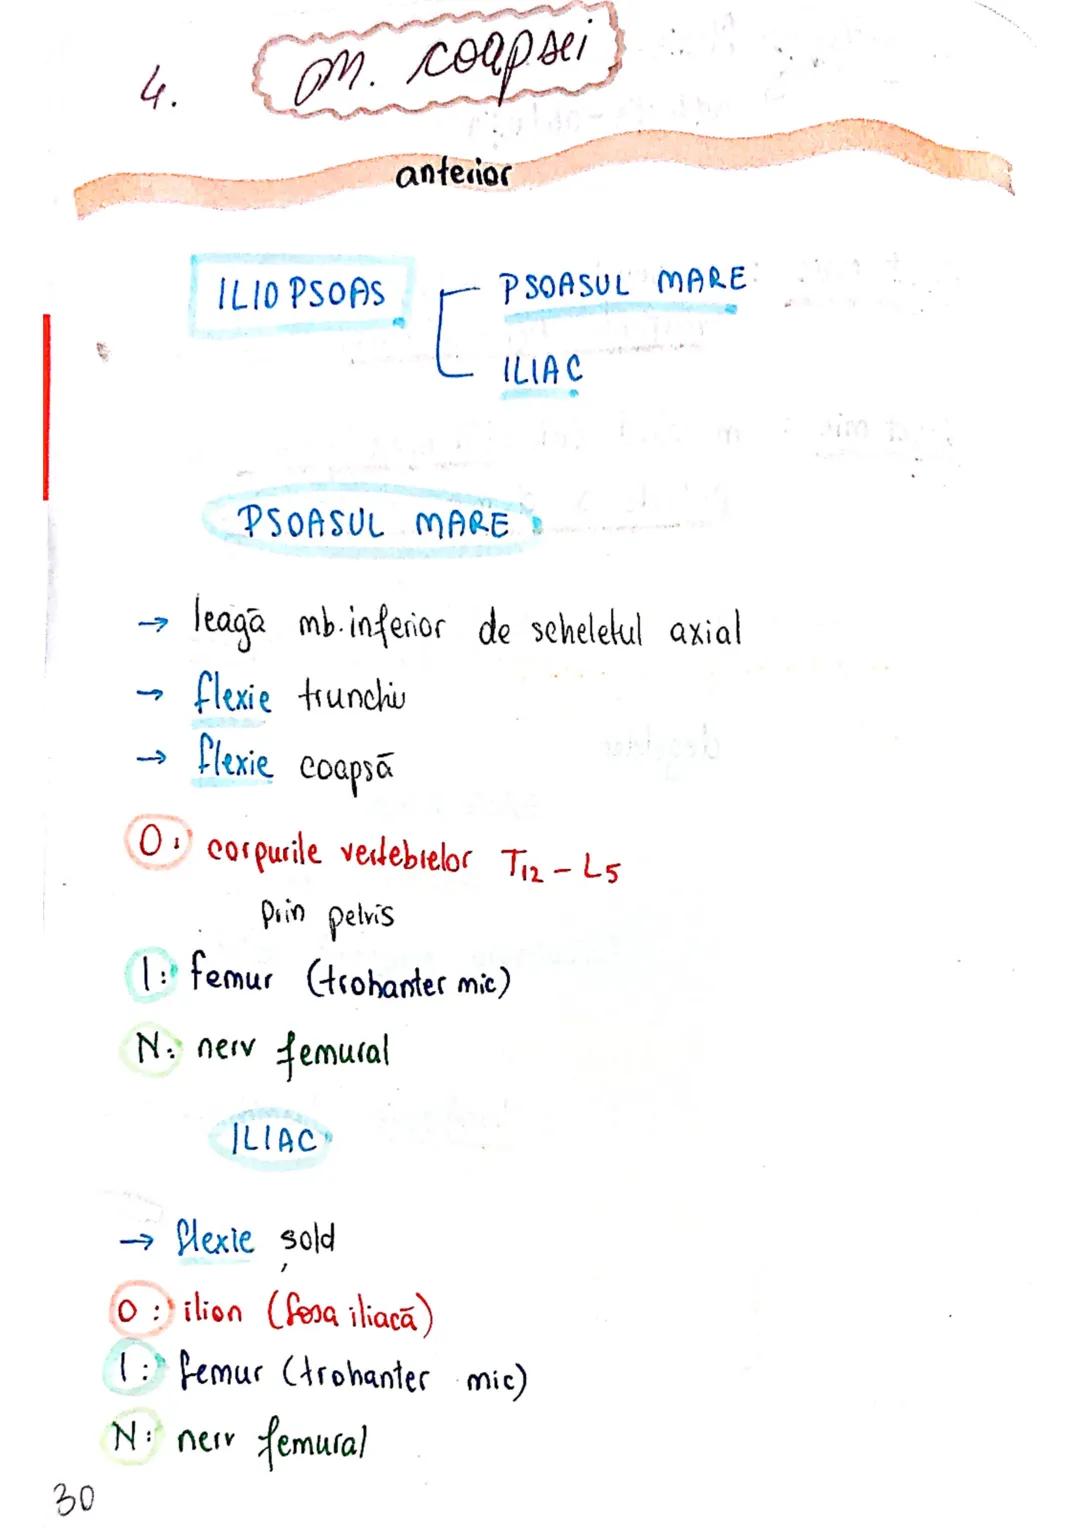 4. m. coapsei
anterior
ILIOPSOAS
PSOASUL MARE
ILIAC
PSOASUL MARE
→ leagă mb. inferior de scheletul axial
→ flexie trunchiu
→ flexie coapsă
O: corpurile vertebrelor T12 - L5
prin pelvis
I: femur (trohanter mic)
N: nerv femural
ILIAC
→ flexie șold
O: ilion (fosa iliacă)
I: femur (trohanter mic)
N: nerv femural
30